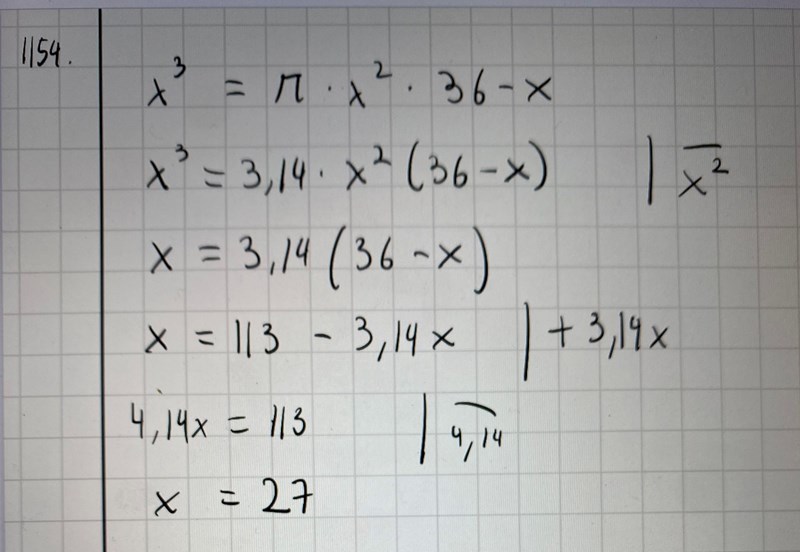 1154.
x³ = π · x² · 36 - x
x³ = 3,14 · x² (36 - x) | ‾x²
x = 3,14 (36 - x)
x = 113 - 3,14x | + 3,14x
4,14x = 113 | ‾4,14
x = 27